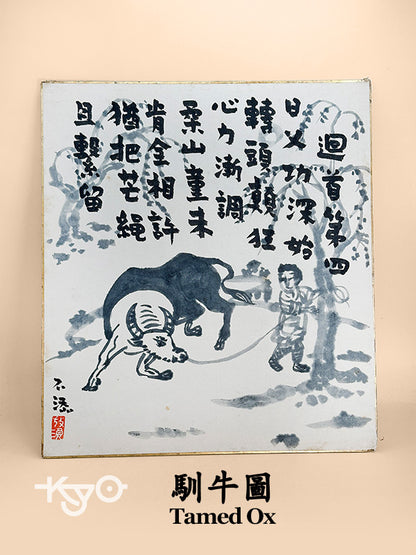 迴首第四
日久功深始
轉頭顛狂
心力漸調
柔山童未
肯全相許
猶把芒繩
且繫留
Kyo
馴牛圖
Tamed Ox